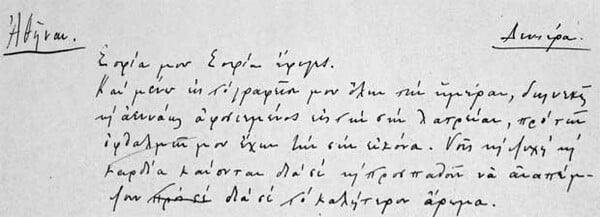 Ἀθῆναι. Δευτέρα.
Σοφία μου Σοφία ἔφυγε.
Καί μένω εἰς τό γραφεῖον μου ὅλην τήν ἡμέραν, διηνεκῶς
ϗ ἀεννάως ἀφοσιωμένος εἰς τήν σήν λατρείαν, πρό τῶν
ὀφθαλμῶν μου ἔχων τήν σήν εἰκόνα. Νοῦς ϗ ψυχή ϗ
καρδία καίονται διά σέ ϗ προσπαθοῦν νά ἀναπέμ-
ψουν πρός σέ διά σέ τό καλήτερον ἄρωμα.